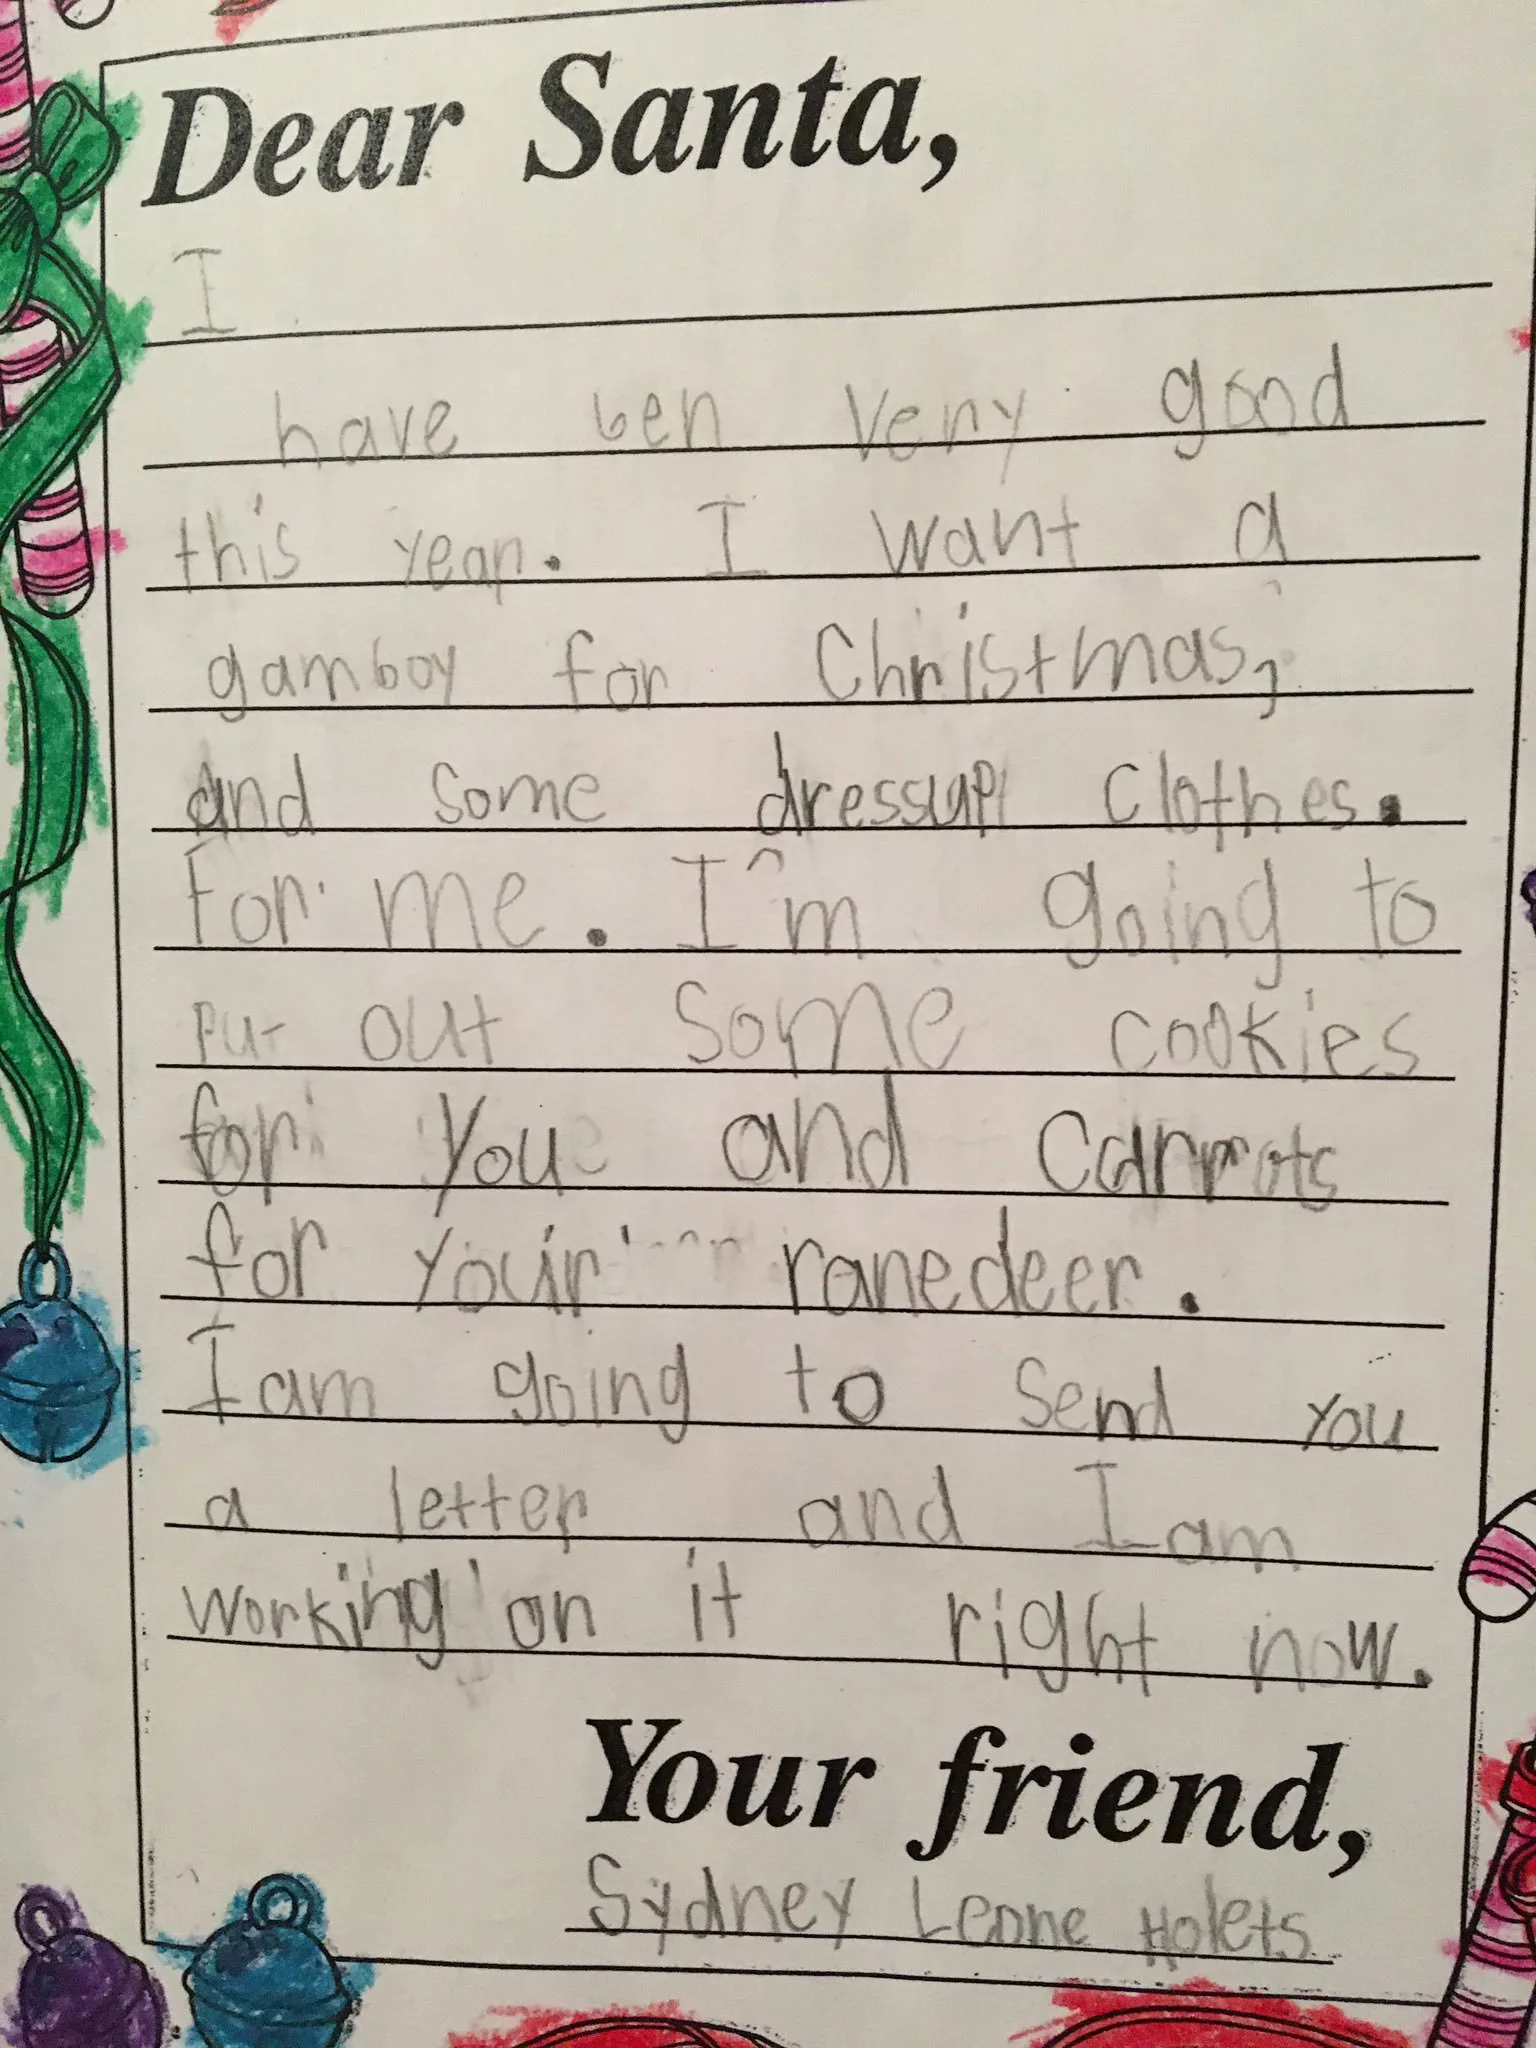 Dear Santa,
I
have ben very good
this year. I want a
gamboy for Christmas,
and some dressup clothes.
for me. I'm going to
put out some cookies
for you and carrots
for your ranedeer.
I am going to send you
a letter and I am
working on it right now.
Your friend,
Sydney Leone Holets